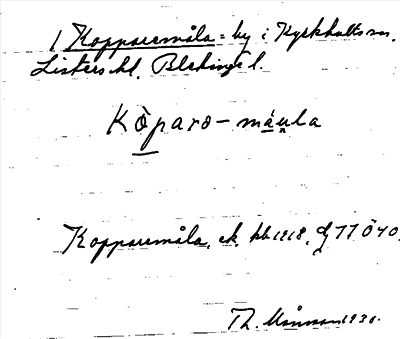 1 Kopparemåla = by i Kyrkhults sn.
Listers hd. Blekinge l.
Kòparo-máu̯la
Kopparemåla, ek. kb 1918. Dj 77 Ö 40.
Th. Månsson 1931.